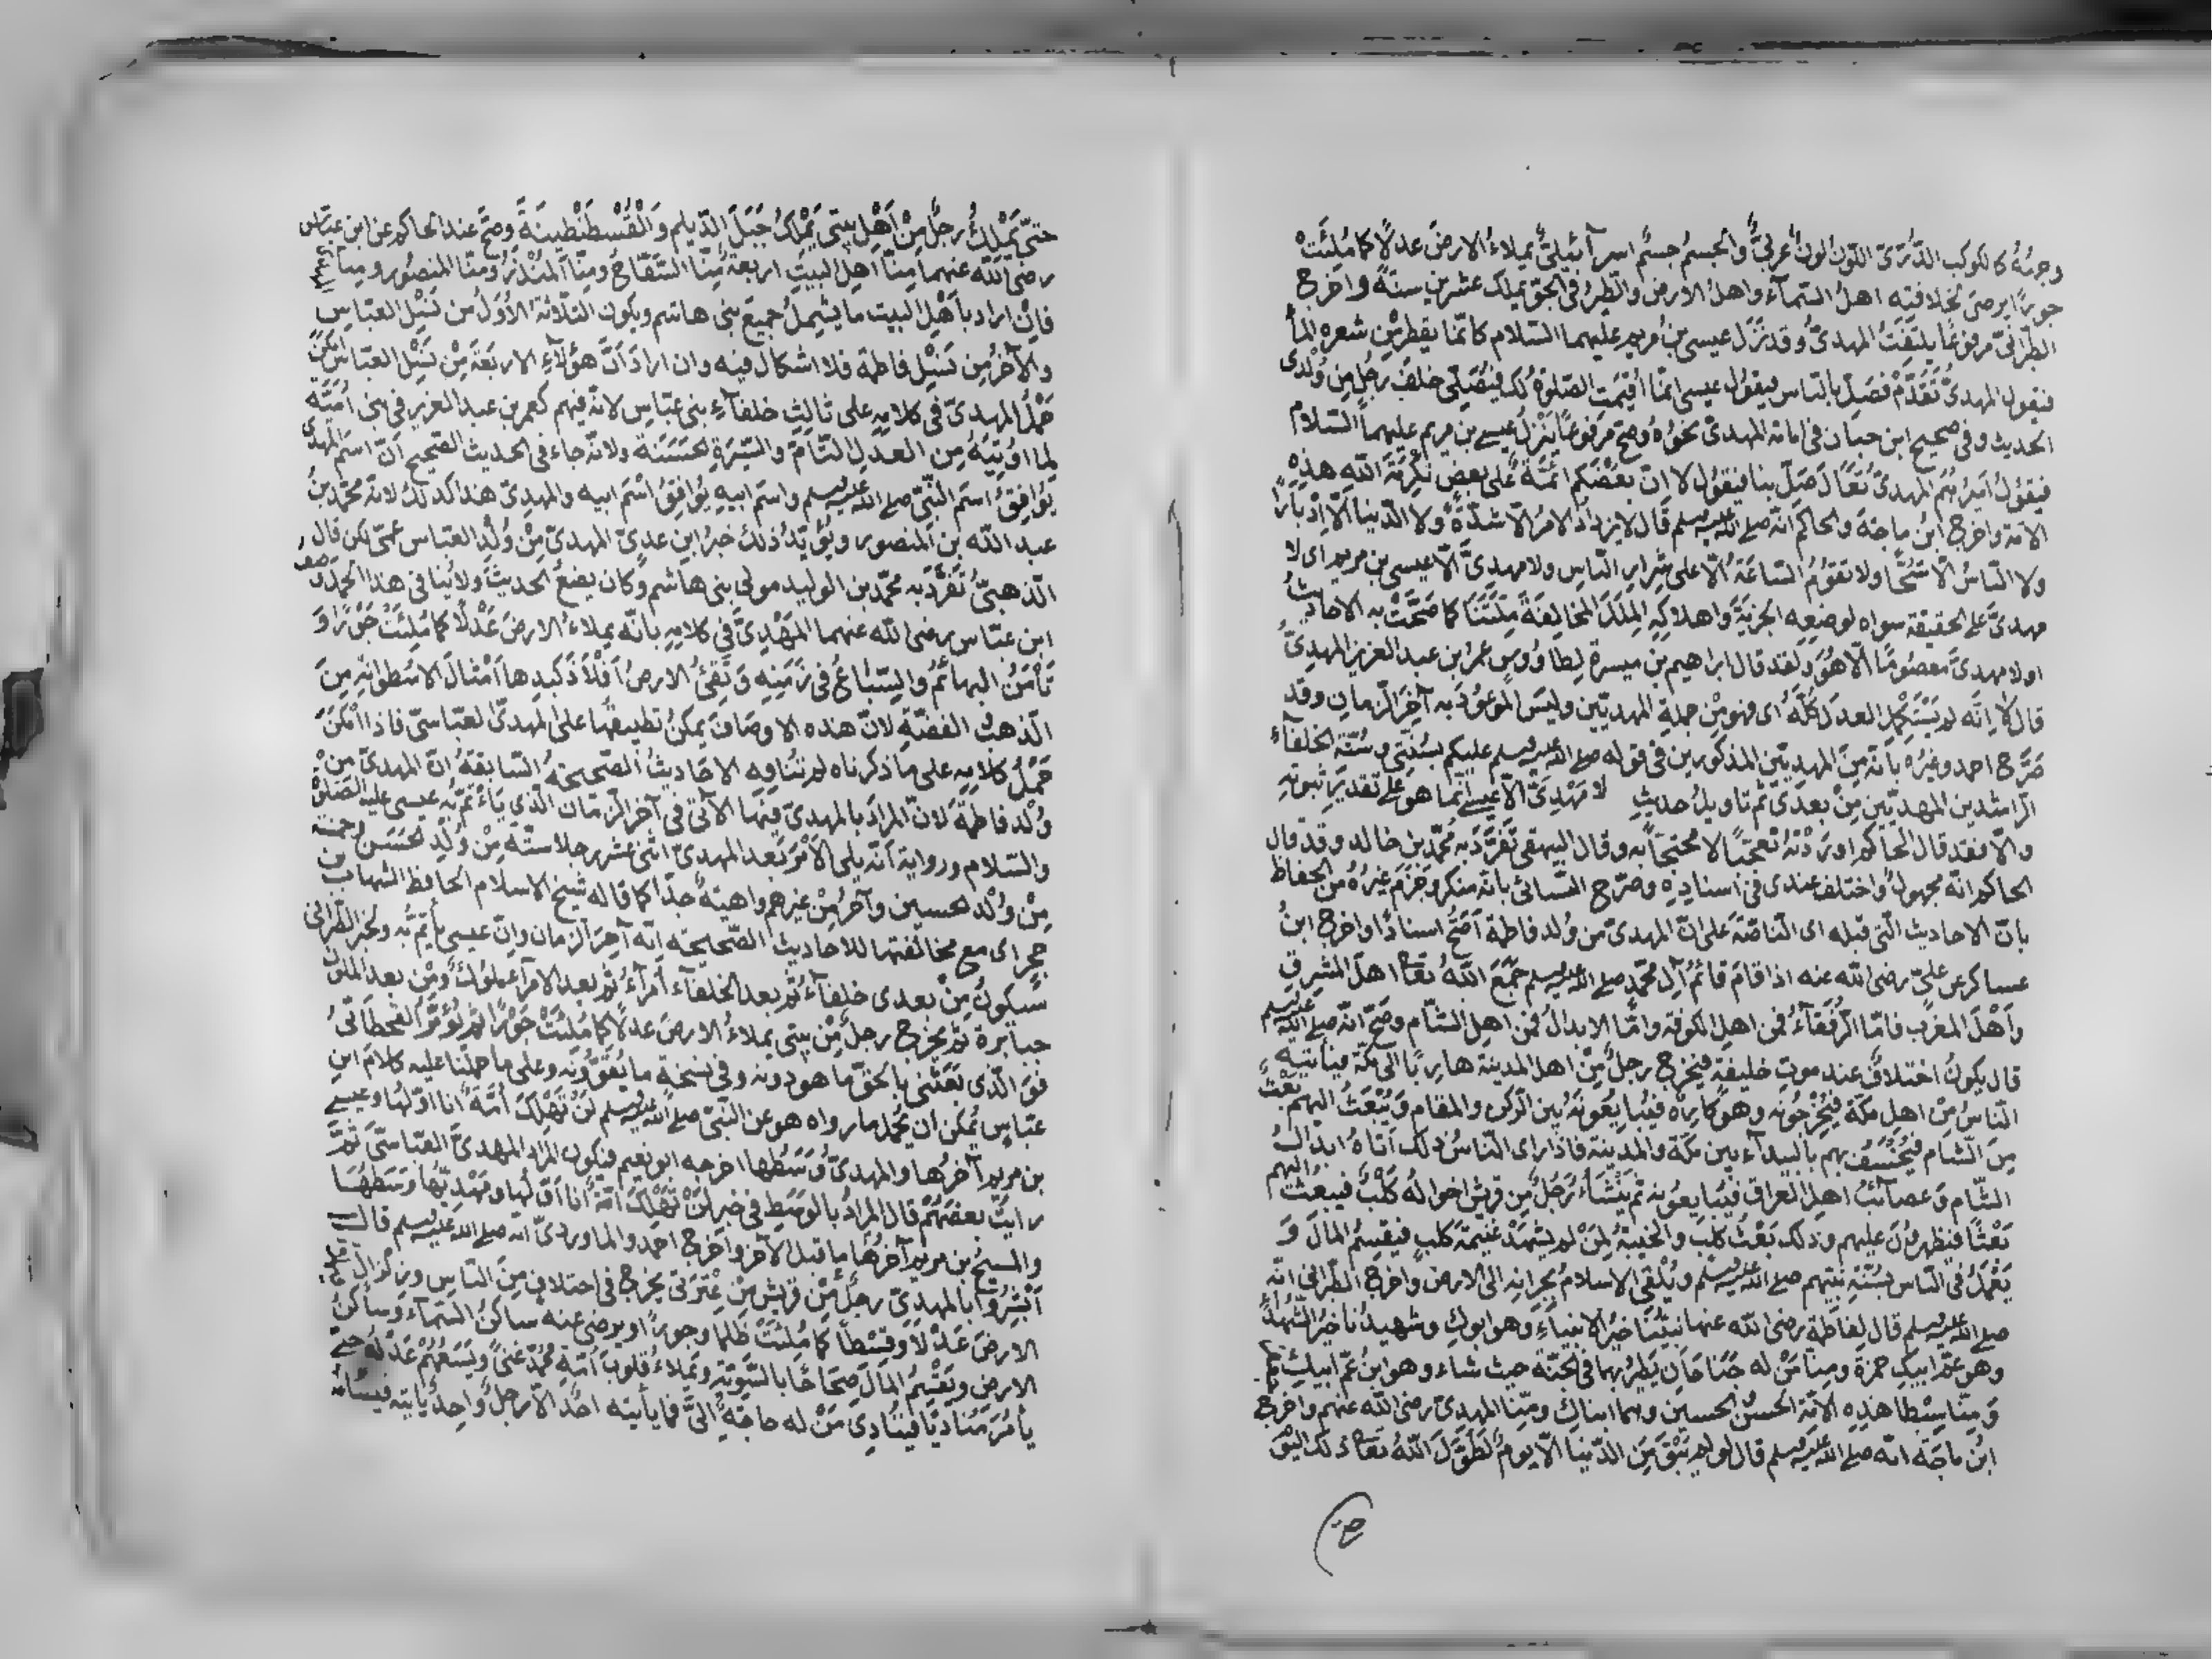 وجهه كالكوكب الدُّرّىّ اللون لون عربىّ والجسم جسم اسرآئيلىّ يملاء الارض عدلا كما ملئت
جورا يرضى لخلافته اهل السّمآء واهل الارض والطير فى الجوّ يملك عشرين سنة واخرج
الطبرانىّ مرفوعًا يلتفت المهدىّ وقد نزل عيسى بن مريم عليهما السّلام كانّما يقطر من شعره المآ
فيقول المهدىّ تقدّم فصلّ بالنّاس فيقول عيسى انّما اقيمت الصّلوة لك فيصلّى خلف رجل من ولدى
الحديث وفى صحيح ابن حبّان فى امامة المهدىّ نحوه وصحّ مرفوعًا ينزل عيسى بن مريم عليهما السّلام
فيقول اميرهم المهدىّ تعال صلّ بنا فيقول لا انّ بعضكم ائمّة على بعض تكرمة الله هذه
الامّة واخرج ابن ماجة والحاكم انّه صلى الله عليه وسلم قال لا يزداد الامر الّا شدّة ولا الدّنيا الّا ادبارًا
ولا النّاس الّا شحًّا ولا تقوم السّاعة الّا على شرار النّاس ولا مهدىّ الّا عيسى بن مريم اى لا
مهدىّ على الحقيقة سواه لوضعه الجزية واهلاكه الملل المخالفة ملّتنا كما صحّت به الاحاديث
او لا مهدىّ معصومًا الّا هو ولقد قال ابراهيم بن ميسرة لطاووس عمر بن عبد العزيز المهدىّ
قال لا انّه لم يستكمل العدل كلّه اى فهو من جملة المهديّين وليس الموعود به آخر الزّمان وقد
صرّح احمد وغيره بانّه من المهديّين المذكورين فى قوله صلى الله عليه وسلم عليكم بسنّتى وسنّة الخلفآء
الرّاشدين المهديّين من بعدى ثمّ تاويل حديث لا مهدىّ الّا عيسى انّما هو على تقدير ثبوته
والّا فقد قال الحاكم اوردته تعجّبًا لا محتجًّا به وقال البيهقى تفرّد به محمّد بن خالد وقد قال
الحاكم انّه مجهول واختلف عنه فى اسناده وصرّح النّسائى بانّه منكر وجزم غيره من الحفّاظ
بانّ الاحاديث الّتى قبله اى النّاصّة على انّ المهدىّ من ولد فاطمة اصحّ اسنادًا واخرج ابن
عساكر عن علىّ رضى الله عنه اذا قام قائم آل محمّد صلى الله عليه وسلم جمع الله تعالى اهل المشرق
واهل المغرب فامّا الرّفقآء فمن اهل الكوفة وامّا الابدال فمن اهل الشّام وصحّ انّه صلى الله عليه وسلم
قال يكون اختلاف عند موت خليفة فيخرج رجل من اهل المدينة هاربًا الى مكّة فيأتيه
النّاس من اهل مكّة فيخرجونه وهو كاره فيبايعونه بين الرّكن والمقام ويبعث اليهم بعث
من الشّام فيخسف بهم بالبيدآء بين مكّة والمدينة فاذا راى النّاس ذلك اتاه ابدال
الشّام وعصآئب اهل العراق فيبايعونه ثمّ ينشأ رجل من قريش اخواله كلب فيبعث اليهم
بعثًا فيظهرون عليهم وذلك بعث كلب والخيبة لمن لم يشهد غنيمة كلب فيقسم المال و
يعمل فى النّاس بسنّة نبيّهم صلى الله عليه وسلم ويلقى الاسلام بجرانه الى الارض واخرج الطّبرانى انّه
صلى الله عليه وسلم قال لفاطمة رضى الله عنها نبيّنا خير الانبياء وهو ابوك وشهيدنا خير الشّهدآء
وهو عمّ ابيك حمزة ومنّا من له جناحان يطير بهما فى الجنّة حيث شاء وهو ابن عمّ ابيك جعفر
ومنّا سبطا هذه الامّة الحسن والحسين وهما ابناك ومنّا المهدىّ رضى الله عنهم واخرج
ابن ماجة انّه صلى الله عليه وسلم قال لو لم يبق من الدّنيا الّا يوم لطوّل الله تعالى ذلك اليوم
حتّى يملك رجل من اهل بيتى يملك جبل الدّيلم والقسطنطينة وصحّ عند الحاكم عن ابن عبّاس
رضى الله عنهما منّا اهل البيت اربعة منّا السّفّاح ومنّا المنذر ومنّا المنصور ومنّا
فان اراد باهل البيت ما يشمل جميع بنى هاشم ويكون الثلاثة الاول من نسل العبّاس
والآخر من نسل فاطمة فلا اشكال فيه وان اراد انّ هؤلآء الاربعة من نسل العبّاس امكن
حمل المهدىّ فى كلامه على ثالث خلفآء بنى عبّاس لانّه فيهم كعمر بن عبد العزيز فى بنى اميّة
لما اوتيه من العدل التّامّ والسّيرة الحسنة ولانّه جاء فى الحديث الصّحيح انّ اسم المهدى
يوافق اسم النّبىّ صلى الله عليه وسلم واسم ابيه يوافق اسم ابيه والمهدىّ هذا كذلك لانّه محمّد بن
عبد الله بن المنصور ويؤيّد ذلك خبر ابن عدىّ المهدىّ من ولد العبّاس عمّى لكن قال
الذّهبىّ تفرّد به محمّد بن الوليد مولى بنى هاشم وكان يضع الحديث ولا ينافى هذا الحمل وصف
ابن عبّاس رضى الله عنهما المهدىّ فى كلامه بانّه يملاء الارض عدلا كما ملئت جورًا و
تأمن البهائم والسّباع فى زمنه وتقئ الارض افلاذ كبدها امثال الاسطوانة من
الذّهب الفضّة لانّ هذه الاوصاف يمكن تطبيقها على المهدىّ العبّاسىّ فاذا امكن
حمل كلامه على ما ذكرناه لم تنافه الاحاديث الصّحيحة السّابقة انّ المهدىّ من
ولد فاطمة لانّ المراد بالمهدىّ فيها الآتى فى آخر الزّمان الّذى يأتمّ به عيسى عليه الصّلوة
والسّلام ورواية انّه يلى الامر بعد المهدىّ اثنى عشر رجلا ستّة من ولد الحسن وخمسة
من ولد الحسين وآخر من غيرهم واهية جدّا كما قاله شيخ الاسلام الحافظ الشّهاب بن
حجر اى مع مخالفتها للاحاديث الصّحيحة انّه آخر الزمان وانّ عيسى يأتمّ به ولخبر الطبرانى
سيكون من بعدى خلفآء ثمّ بعد الخلفآء امرآء ثمّ بعد الامرآء ملوك ومن بعد الملوك
جبابرة ثمّ يخرج رجل من بيتى يملاء الارض عدلا كما ملئت جورًا ثمّ يؤمّر القحطانىّ
فو الّذى بعثنى بالحقّ ما هو دونه وفى نسخة ما يقوونه وعلى ما حملنا عليه كلام ابن
عبّاس يمكن ان يحمل ما رواه هو عن النّبىّ صلى الله عليه وسلم لن تهلك امّة انا اوّلها وعيسى
بن مريم آخرها والمهدىّ وسطها اخرجه ابو نعيم فيكون المراد المهدىّ العبّاسىّ ثمّ
رايت بعضهم قال المراد بالوسط فى خبر لن تهلك امّة انا اوّلها ومهديّها وسطها
والمسيح بن مريم آخرها ما قبل الآخر واخرج احمد والماوردىّ انّه صلى الله عليه وسلم قال
ابشروا بالمهدىّ رجل من قريش من عترتى يخرج فى اختلاف من النّاس وزلزال فيملاء
الارض عدلا وقسطا كما ملئت ظلما وجورًا ويرضى عنه ساكن السّمآء وساكن
الارض ويقسم المال صحاحًا بالسّويّة ويملاء قلوب امّة محمّد غنى ويسعهم عدله حتّى
يأمر مناديًا فينادى من له حاجة الىّ فما يأتيه احد الّا رجل واحد يأتيه فيسأله